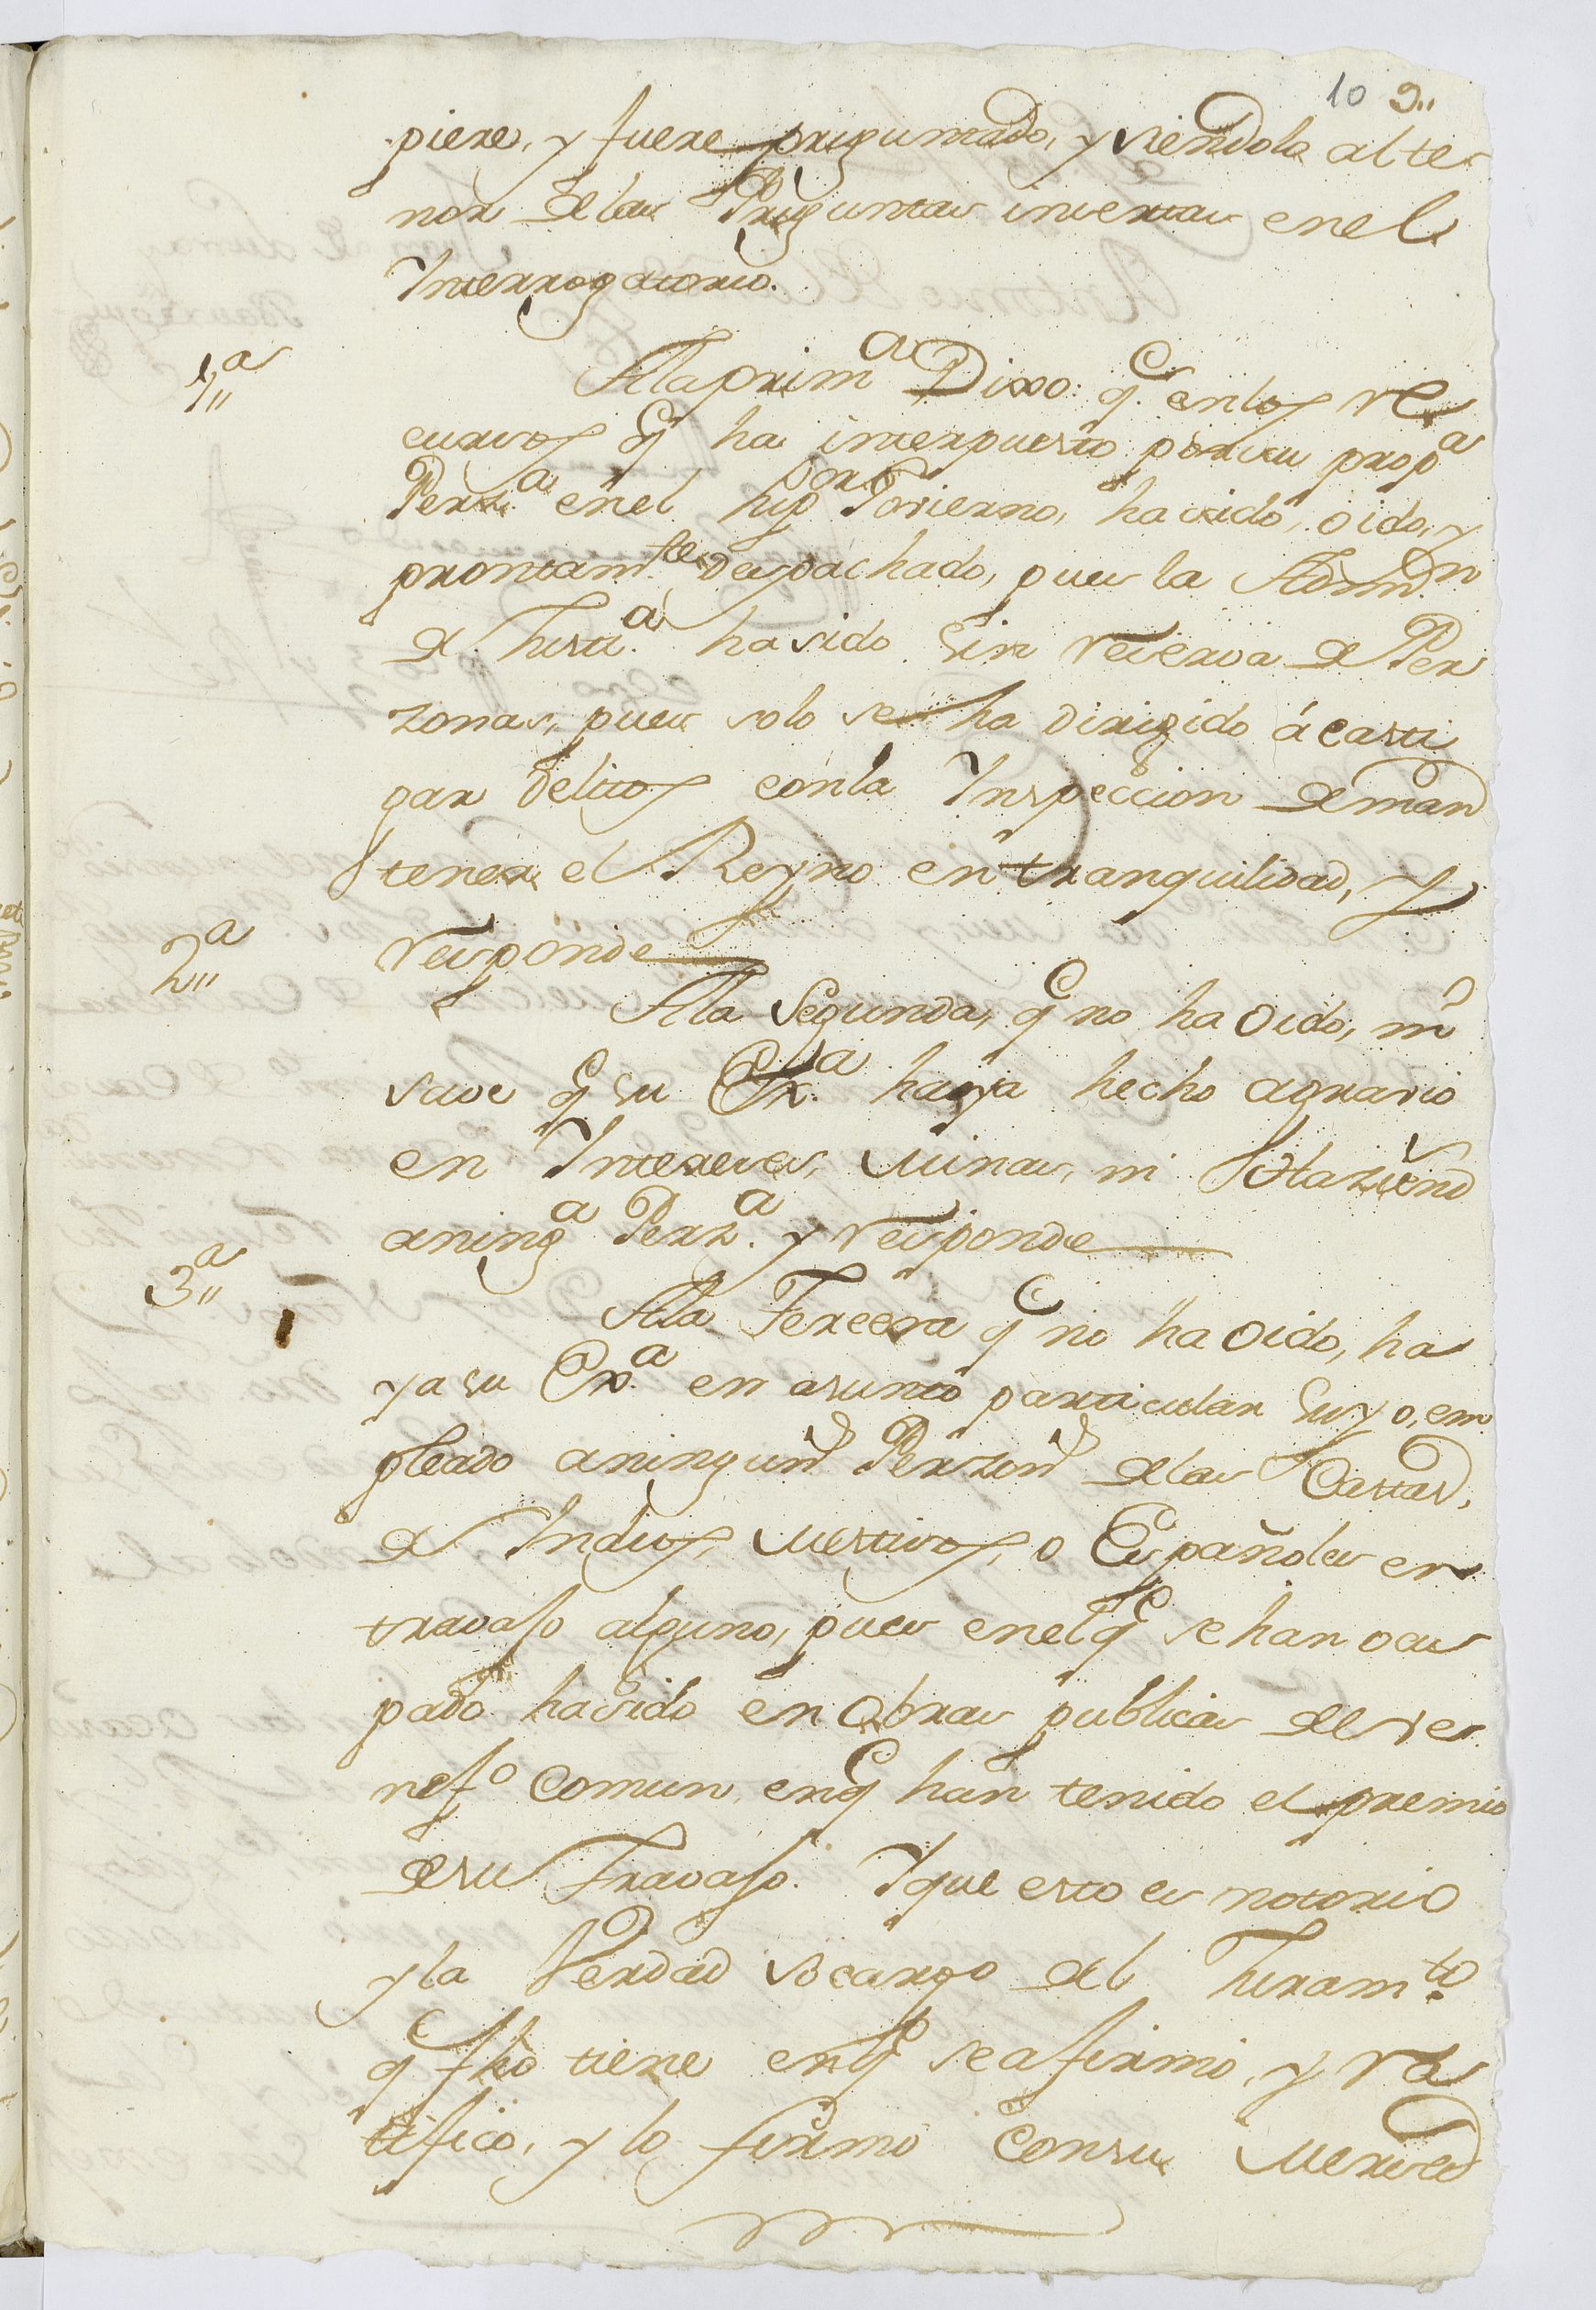 10 9,,
piere, y fuere preguntado, y siendola al te
nor de las Preguntas insertas enel
Ynterrogatorio.
1,,a
Ala prim.a Dixo: q.e enlos re
cursos q.e ha interpuesto por su prop.a
Perz.a enel sup.or Govierno, ha sido, oido, y
prontam.te despachado, pues la Admin.n
de Justi.a ha sido sin reserva de Per
zonas, pues solo se ha dirigido á casti
gar delitos conla Ynspeccion de man
tener el Reyno en tranquilidad, y
responde
2,,a
Ala Segunda, q.e no ha oido, ni
save q.e su Ex.a haya hecho agravio
en Yntereses, Minas, ni Hazienda
aning.a Perz.a y responde
3,,a
Ala Tercera q.e no ha oido, ha
ya su Ex.a en asunto particular suyo, em
pleado aninguna Perzona delas Castas,
de Indios, Mestisos, o Españoles en
travajo alguno, pues enel q.e se han ocu
pado ha sido en obras publicas de ve
nef.o comun, enq.e han tenido el premio
desu Travajo. Yque esto es notorio
yla Verdad socargo del Juram.to
q.e fho tiene enq.e se afirmo, y ra
tifico, y lo firmo consu Merced